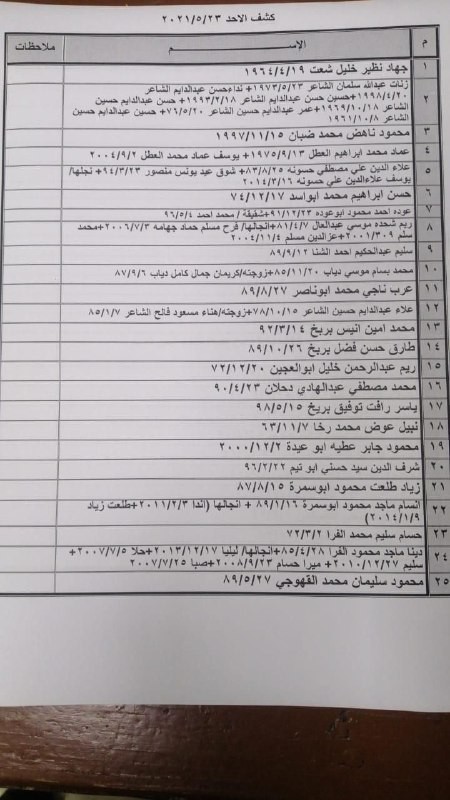 كشف الاحد ٢٠٢١/٥/٢٣
م الإســـم ملاحظات
١ جهاد نظير خليل شعت ١٩٦٤/٤/١٩
٢ زنات عبدالله سلمان الشاعر ١٩٧٣/٥/٢٣+ نداءحسن عبدالدايم الشاعر
١٩٩٨/٤/٢٠+حسين حسن عبدالدايم الشاعر ١٩٩٣/٢/١٨+ حسن عبدالدايم حسين
الشاعر ١٩٦٩/١٠/١٨+عمر عبدالدايم حسين الشاعر ٧٦/٥/٢٠+ حسين عبدالدايم حسين
الشاعر ١٩٦١/١٠/٨
٣ محمود ناهض محمد ضبان ١٩٩٧/١١/١٥
٤ عماد محمد ابراهيم العطل ١٩٧٥/٩/١٣+ يوسف عماد محمد العطل ٢٠٠٤/٩/٢
٥ علاء الدين علي مصطفي حسونه ٨٣/٨/٢٥+ شوق عيد يونس منصور ٩٤/٣/٢٣+ نجلها/
يوسف علاءالدين علي حسونه ٢٠١٤/٣/١٦
٦ حسن ابراهيم محمد ابواسد ٧٤/١٢/١٧
٧ عوده احمد محمود ابوعوده ٩١/١٢/٢٣+شقيقة / محمد احمد ٩٦/٥/٤
٨ ريم شحده موسي عبدالعال ٨١/٤/٧+انجالها/ فرح مسلم حماد جهامه ٢٠٠٦/٧/٣+محمد
سلم ٢٠٠١/٣٠٩+عزالدين مسلم ٢٠٠٤/١١/٤
٩ سليم عبدالحكيم احمد الشنا ٨٩/٩/١٢
١٠ محمد بسام موسي دياب ٨٥/١١/٢٠+زوجته/كريمان جمال كامل دياب ٨٧/٩/٦
١١ عرب ناجي محمد ابوناصر ٨٩/٨/٢٧
١٢ علاء عبدالدايم حسين الشاعر ٧٨/١٠/١٥+زوجته/هناء مسعود فالح الشاعر ٨٥/١/٧
١٣ محمد امين انيس بربخ ٩٢/٣/١٤
١٤ طارق حسن فضل بربخ ٨٩/١٠/٢٦
١٥ ريم عبدالرحمن خليل ابوالعجين ٧٢/١٢/٢٠
١٦ محمد مصطفي عبدالهادي دحلان ٩٠/٤/٢٣
١٧ ياسر رافت توفيق بربخ ٩٨/٥/١٥
١٨ نبيل عوض محمد رخا ٦٣/١١/٧
١٩ محمود جابر عطيه ابو عيدة ٢٠٠٠/١٢/٢
٢٠ شرف الدين سيد حسني ابو تيم ٩٦/٢/٢٢
٢١ زياد طلعت محمود ابوسمرة ٨٧/٨/١٥
٢٢ ماجد محمود ابوسمرة ٨٩/١/١٦ + انجالها (اندا ٢٠١١/٢/٣+طلعت زياد
٢٠١٤/١/٩)
٢٣ حسام سليم محمد الفرا ٧٢/٣/٢
٢٤ دينا ماجد محمود الفرا ٨٥/٤/٢٨+انجالها/ ليليا ٢٠١٣/١٢/١٧+حلا ٢٠٠٧/٧/٥+
سليم ٢٠١٠/١٢/٢٧+ ميرا حسام ٢٠٠٨/٩/٢٣+صبا ٢٠٠٧/٧/٢٥
٢٥ محمود سليمان محمد القهوجي ٨٩/٥/٢٧